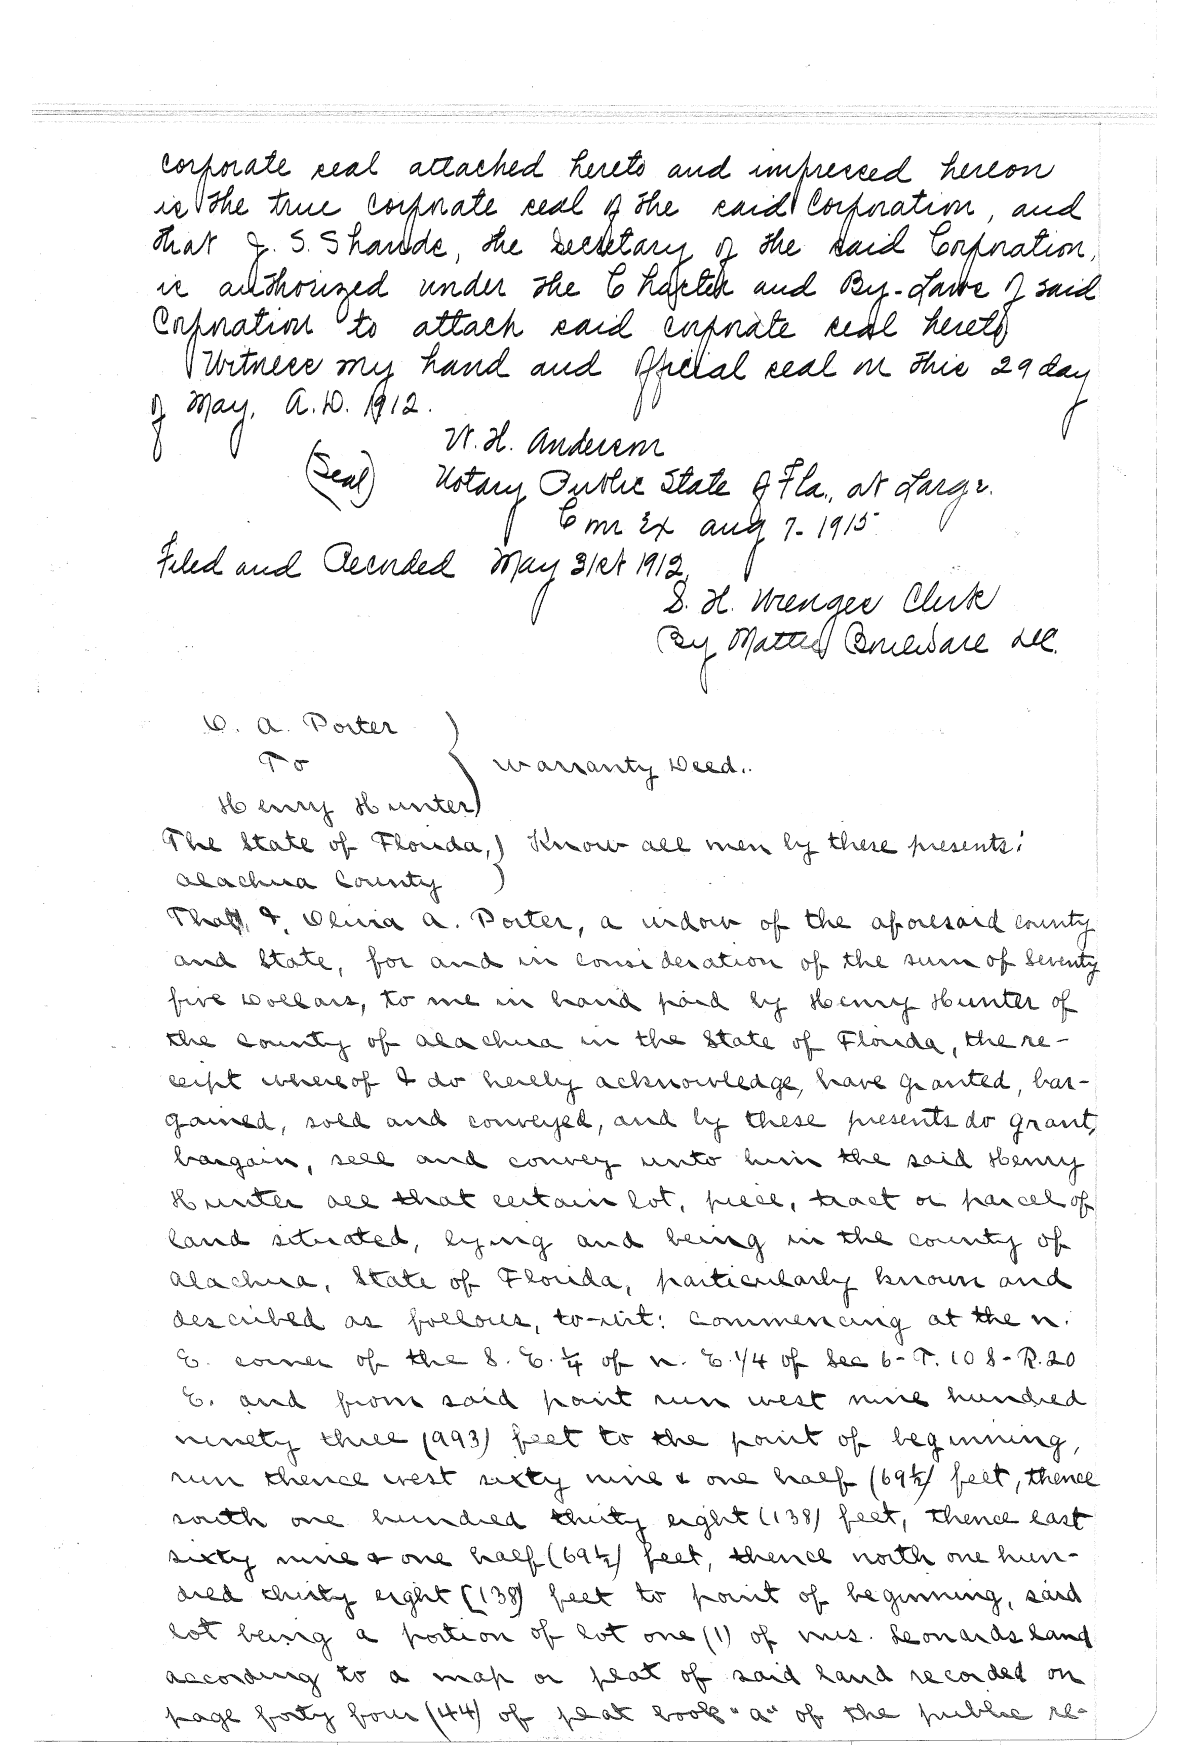 corporate seal attached hereto and impressed hereon
is the true corporate seal of the said Corporation, and
that J. S. Shands, the Secretary of the said Corporation,
is authorized under the Charter and By-Laws of said
Corporation to attach said corporate seal hereto
Witness my hand and official seal on this 29 day
of May, A.D. 1912.
W. H. Anderson
(Seal) Notary Public State of Fla., at Large.
Com Ex Aug 7-1915
Filed and Recorded May 31st 1912,
S. H. Wienges Clerk
By Mattie Boulware D.C.
O. A. Porter
To
Warranty Deed.
Henry Hunter
The State of Florida,) Know all men by these presents:
Alachua County )
That, I, Olivia A. Porter, a widow of the aforesaid county
and State, for and in consideration of the sum of Seventy
five Dollars, to me in hand paid by Henry Hunter of
the County of Alachua in the State of Florida, the re-
ceipt whereof I do hereby acknowledge, have granted, bar-
gained, sold and conveyed, and by these presents do grant,
bargain, sell and convey unto him the said Henry
Hunter all that certain lot, piece, tract or parcel of
land situated, lying and being in the county of
Alachua, State of Florida, particularly known and
described as follows, to-wit: Commencing at the N.
E. corner of the S. E. 1/4 of N. E. 1/4 of Sec 6-T. 10 S-R. 20
E. and from said point run west nine hundred
ninety three (993) feet to the point of beginning,
run thence west sixty nine & one half (69½) feet, thence
south one hundred thirty eight (138) feet, thence east
sixty nine & one half (69½) feet, thence north one hun-
dred thirty eight (138) feet to point of beginning, said
lot being a portion of lot one (1) of Mrs. Leonards land
according to a map or plat of said land recorded on
page forty four (44) of plat book "A" of the public re-